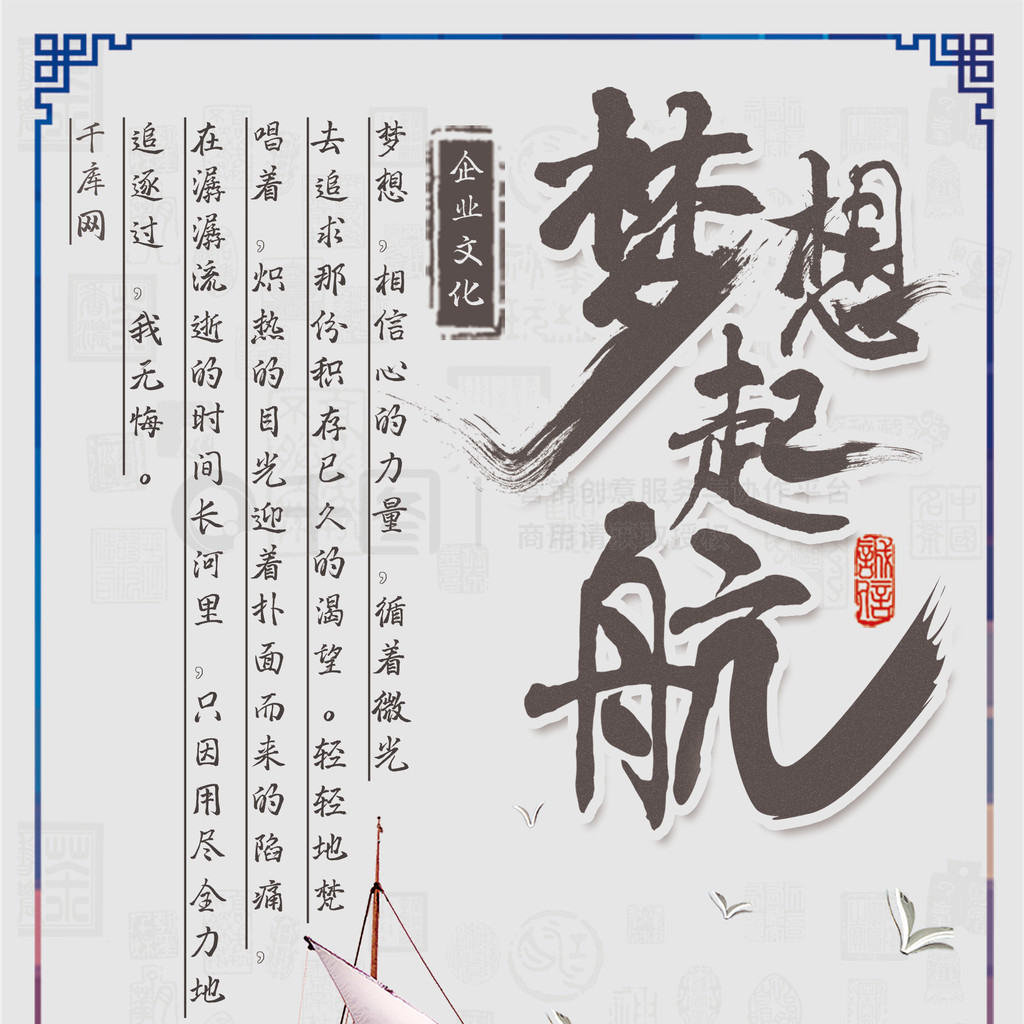 梦想起航
誠信
企业文化
梦想,相信心的力量,循着微光
去追求那份积存已久的渴望。轻轻地梵
唱着,炽热的目光迎着扑面而来的陷痛,
在潺潺流逝的时间长河里,只因用尽全力地
追逐过,我无悔。
千库网
营销创意服务与协作平台
商用请获取授权